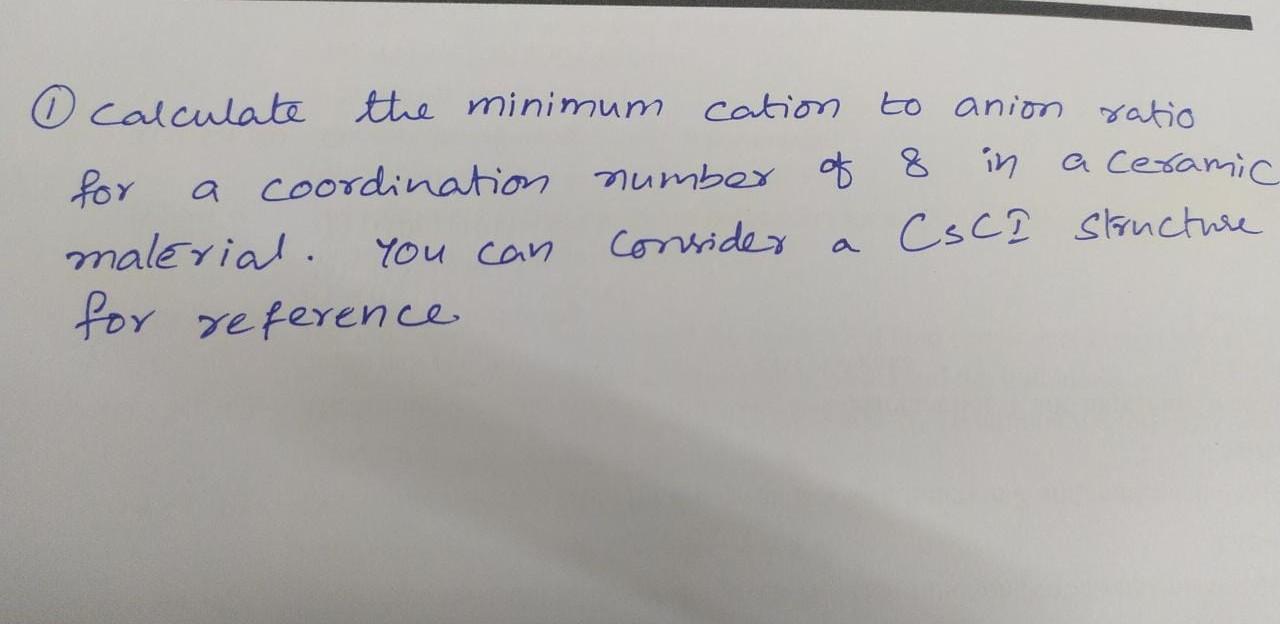 ① Calculate the minimum cation to anion ratio
for a coordination number of 8 in a Ceramic
material. You can Consider a CsCI structure
for reference